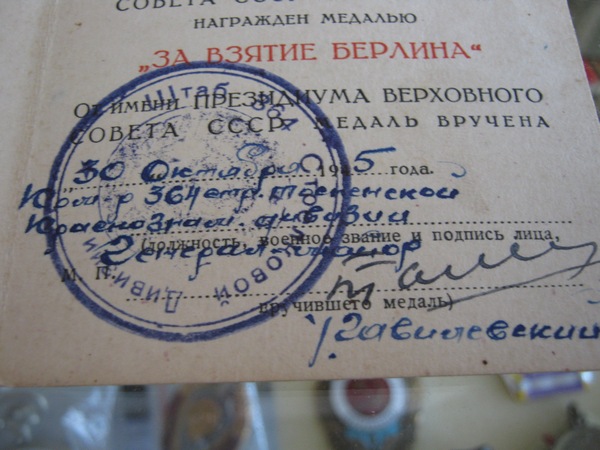 СОВЕТА СССР
НАГРАЖДЕН МЕДАЛЬЮ
„ЗА ВЗЯТИЕ БЕРЛИНА“
От имени ПРЕЗИДИУМА ВЕРХОВНОГО
СОВЕТА СССР МЕДАЛЬ ВРУЧЕНА
„30 Октября 1945 года.
Ком-р 364 стр. Тосненской
Краснознам. дивизии
(должность, военное звание и подпись лица,
Генерал-майор
М. П.
вручившего медаль)
/Ржавилевский
Штаб 364
ДИВИЗИИ